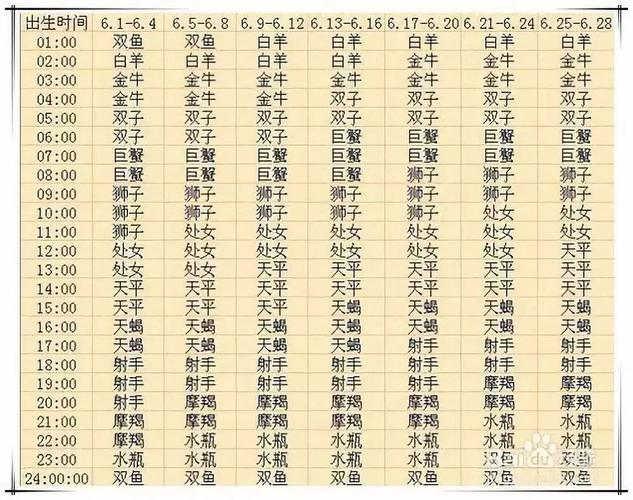 出生时间 6.1-6.4 6.5-6.8 6.9-6.12 6.13-6.16 6.17-6.20 6.21-6.24 6.25-6.28
01:00 双鱼 双鱼 白羊 白羊 白羊 白羊 白羊
02:00 白羊 白羊 白羊 白羊 金牛 金牛 金牛
03:00 金牛 金牛 金牛 金牛 金牛 金牛 金牛
04:00 金牛 金牛 金牛 双子 双子 双子 双子
05:00 双子 双子 双子 双子 双子 双子 双子
06:00 双子 双子 双子 巨蟹 巨蟹 巨蟹 巨蟹
07:00 巨蟹 巨蟹 巨蟹 巨蟹 巨蟹 巨蟹 巨蟹
08:00 巨蟹 巨蟹 巨蟹 巨蟹 狮子 狮子 狮子
09:00 狮子 狮子 狮子 狮子 狮子 狮子 狮子
10:00 狮子 狮子 狮子 狮子 狮子 处女 处女
11:00 狮子 处女 处女 处女 处女 处女 处女
12:00 处女 处女 处女 处女 处女 处女 天平
13:00 处女 处女 天平 天平 天平 天平 天平
14:00 天平 天平 天平 天平 天平 天平 天平
15:00 天平 天平 天平 天蝎 天蝎 天蝎 天蝎
16:00 天蝎 天蝎 天蝎 天蝎 天蝎 天蝎 天蝎
17:00 天蝎 天蝎 天蝎 天蝎 射手 射手 射手
18:00 射手 射手 射手 射手 射手 射手 射手
19:00 射手 射手 射手 射手 射手 摩羯 摩羯
20:00 射手 摩羯 摩羯 摩羯 摩羯 摩羯 摩羯
21:00 摩羯 摩羯 摩羯 摩羯 摩羯 水瓶 水瓶
22:00 摩羯 水瓶 水瓶 水瓶 水瓶 水瓶 水瓶
23:00 水瓶 水瓶 水瓶 水瓶 水瓶
24:00:00 双鱼 双鱼 双鱼 双鱼 双鱼 双鱼 双鱼